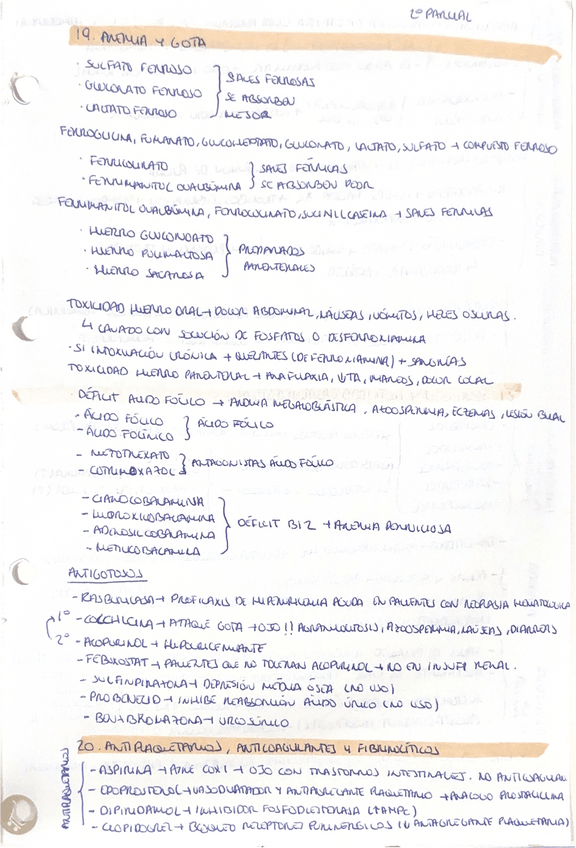 2º PARCIAL
19. ANEMIA Y GOTA
· SULFATO FERROSO
· GLUCONATO FERROSO
· LACTATO FERROSO
SALES FERROSAS
SE ABSORBEN
MEJOR
FERROGLICINA, FUMARATO, GLUCOHEPTATO, GLUCONATO, LACTATO, SULFATO → COMPUESTO FERROSO
· FERRICOLINATO
· FERRIMANITOL OVALBÚMINA
SALES FÉRRICAS
SE ABSORBEN PEOR
FERRIMANITOL OVALBÚMINA, FERROCOLINATO, SUCINILCASEINA → SALES FÉRRICAS
· HIERRO GLUCONATO
· HIERRO POLIMALTOSA
· HIERRO SACAROSA
PREPARADOS
PARENTERALES
TOXICIDAD HIERRO ORAL → DOLOR ABDOMINAL, NÁUSEAS, VÓMITOS, HECES OSCURAS.
↳ LAVADO CON SOLUCIÓN DE FOSFATOS O DESFERROXIAMINA
· SI INTOXICACIÓN CRÓNICA → QUELANTES (DEFERROXIAMINA) + SANGRÍAS
TOXICIDAD HIERRO PARENTERAL → ANAFILAXIA, ↓TA, MAREOS, DOLOR LOCAL
· DÉFICIT ÁCIDO FÓLICO → ANEMIA MEGALOBLÁSTICA, AZOOSPERMIA, ECZEMAS, LESIÓN BUCAL
- ÁCIDO FÓLICO
- ÁCIDO FOLÍNICO
ÁCIDO FÓLICO
- METOTREXATO
- COTRIMOXAZOL
ANTAGONISTAS ÁCIDO FÓLICO
- CIANOCOBALAMINA
- HIDROXICOBALAMINA
- ADENOSILCOBALAMINA
- METILCOBALAMINA
DÉFICIT B12 → ANEMIA PERNICIOSA
ANTIGOTOSOS
- RASBURICASA → PROFILAXIS DE HIPERURICEMIA AGUDA EN PACIENTES CON NEOPLASIA HEMATOLÓGICA
1º - COLCHICINA → ATAQUE GOTA → OJO!! AGRANULOCITOSIS, AZOOSPERMIA, NÁUSEAS, DIARREAS
2º - ALOPURINOL → HIPOURICEMIANTE
- FEBUXOSTAT → PACIENTES QUE NO TOLERAN ALOPURINOL → NO EN INSUF. RENAL.
- SULFINPIRAZONA → DEPRESIÓN MÉDULA ÓSEA (NO USO)
- PROBENECID → INHIBE REABSORCIÓN ÁCIDO ÚRICO (NO USO)
- BENZBROMAZONA → URICOSÚRICO
20. ANTIPLAQUETARIOS, ANTICOAGULANTES Y FIBRINOLÍTICOS
ANTIPLAQUETARIOS
- ASPIRINA → AINE COX1 → OJO CON TRASTORNOS INTESTINALES. NO ANTICOAGULAR
- EPOPROSTENOL → VASODILATADOR Y ANTIAGREGANTE PLAQUETARIO → ANÁLOGO PROSTACICLINA
- DIPIRIDAMOL → INHIBIDOR FOSFODIESTERASA (↑AMPC)
- CLOPIDOGREL → BLOQUEO RECEPTORES PURINÉRGICOS (ANTIAGREGANTE PLAQUETARIA)